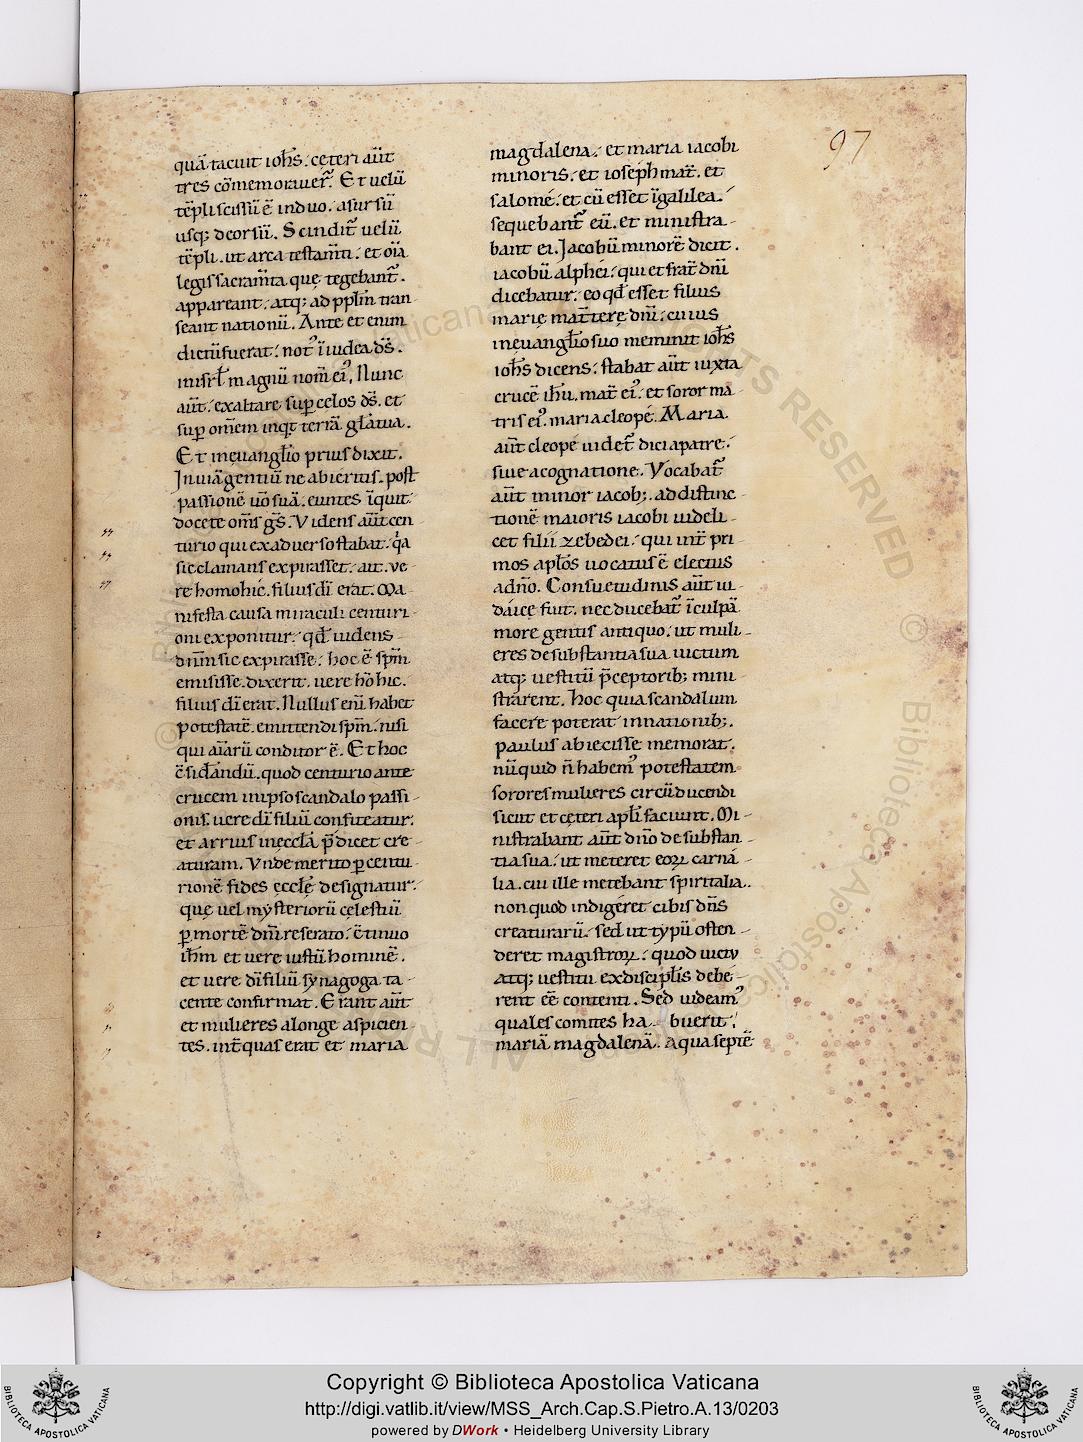 97
quā tacuit ioh̄s. cęteri aūt
tres cōmemorauer̄. Et uelū
tēpli scissū ē in duo. a sursū
usq; deorsū. Scindit̄ uelū
tēpli. ut arca testam̄ti. et oīa
legis sacram̄ta quę tegebant̄.
appareant. atq; ad pp̄lm tran
seant nationū. Ante et enim
dictū fuerat. not' ī iudea d̄s.
in isr̄l magnū nom̄ ei'. Nunc
aūt. exaltare sup celos d̄s. et
sup om̄em inq̇t terrā gl̄a tua.
Et in euangl̄io prius dixit.
In uiā gentiū ne abieritis. post
passionē ūo suā. euntes īquit.
docete om̄s ḡs. Videns aūt cen
turio qui ex aduerso stabat. q̇a
sic clamans expirasset. ait. ve
re homo hic. filius dī erat. Ma
nifesta causa miraculi centuri
oni exponitur. qd̄ uidens
dn̄m sic expirasse. hoc ē sp̄m
emisisse. dixerit. uere hō hic.
filius dī erat. Nullus enī habet
potestatē emittendi sp̄m. nisi
qui aīarū conditor ē. Et hoc
c̄sid̄andū. quod centurio ante
crucem in ipso scandalo passi
onis. uere dī filiū confiteatur.
et arrius in ęccl̄a p̄dicet cre
aturam. Vnde merito p̱ centu
rionē fides ęccl̄ę designatur.
quę uel mysteriorū cęlestiū
p̱ mortē dn̄i reserato. c̄tinuo
ih̄m et uere iustū hominē.
et uere dī filiū synagoga ta
cente confirmat. Erant aūt
et mulieres a longe aspicien
tes. int̄ quas erat et maria
magdalena. et maria iacobi
minoris. et ioseph mat̄. et
salomę. et cū esset ī galilea.
sequebant̄ eū. et ministra
bant ei. Jacobū minorē dicit.
iacobū alphei. qui et frat̄ dn̄i
dicebatur. eo qd̄ esset filius
marię mat̄terę dn̄i. cuius
in euangl̄io suo meminit ioh̄s
ioh̄s dicens. stabat aūt iuxta
crucē ih̄u. mat̄ ei'. et soror ma
tris ei'. maria cleopę. Maria
aūt cleopę uidet̄ dici a patre.
siue a cognatione. Vocabat̄
aūt minor iacob;. ad distinc
tionē maioris iacobi uideli
cet filii zebedei. qui int̄ pri
mos apl̄os uocatus ē electus
a dn̄o. Consuetudinis aūt iu
daicę fuit. nec ducebat̄ ī culpā
more gentis antiquo. ut muli
eres de substantia sua uictum
atq; uestitū p̄ceptorib; mini
strarent. hoc quia scandalum
facere poterat in nationib;.
paulus abiecisse memorat.
nūquid n̄ habem' potestatem
sorores mulieres circūducendi
sicut et cęteri apl̄i faciunt. Mi
nistrabant aūt dn̄o de substan
tia sua. ut meteret eoꝝ carna
lia. cui ille metebant spiritalia.
non quod indigeret cibis dn̄s
creaturarū. sed ut typū osten
deret magistroꝝ. quod uictu
atq; uestitu ex discipl̄is debe
rent ee contenti. Sed uideam'
quales comites ha buerit.
mariā magdalenā. A qua septē
Copyright © Biblioteca Apostolica Vaticana
http://digi.vatlib.it/view/MSS_Arch.Cap.S.Pietro.A.13/0203
powered by DWork • Heidelberg University Library
BIBLIOTECA APOSTOLICA VATICANA
BIBLIOTECA APOSTOLICA VATICANA